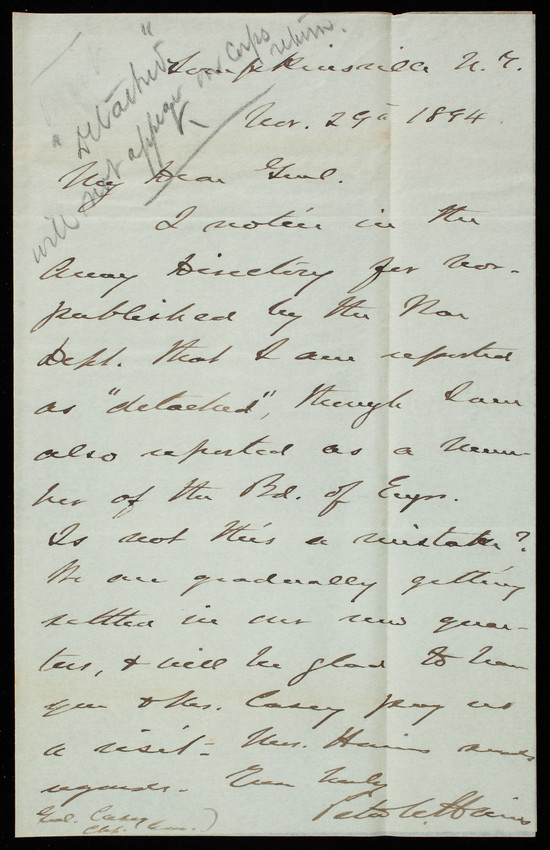 "Detached"
will not appear on Corps
return.
Tompkinsville N.Y.
Nov. 29th 1894
My Dear Genl.
I notice in the
Army Directory for Nov.
published by the War
Dept. that I am reported
as "detached", though I am
also reported as a mem-
ber of the Bd. of Engrs.
Is not this a mistake?
We are gradually getting
settled in our new quar-
ters, & will be glad to have
you & Mrs. Casey pay us
a visit. Mrs. Hains sends
regards. Yours truly
Peter C. Hains
Genl. Casey